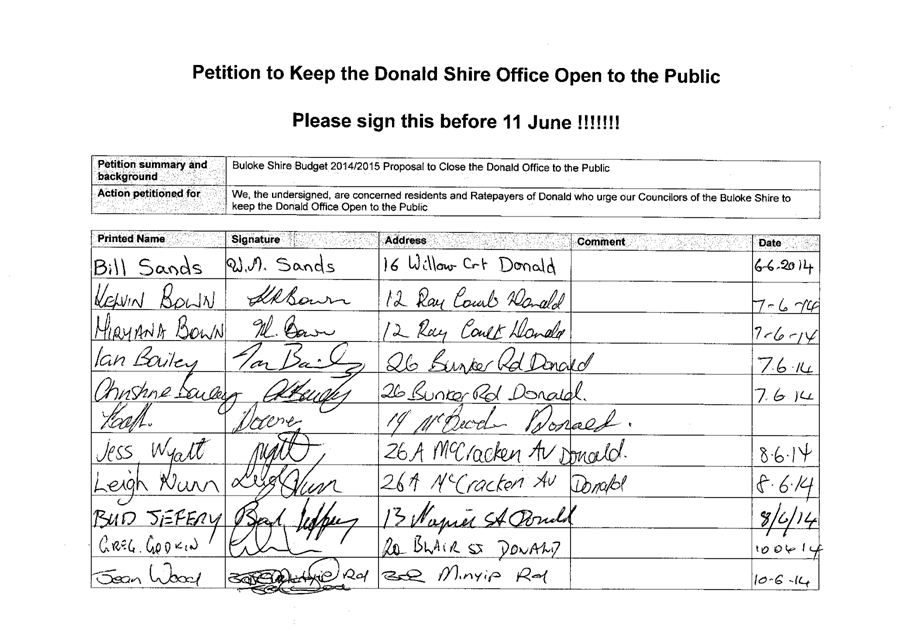 Petition to Keep the Donald Shire Office Open to the Public
Please sign this before 11 June !!!!!!!
Petition summary and background Buloke Shire Budget 2014/2015 Proposal to Close the Donald Office to the Public
Action petitioned for We, the undersigned, are concerned residents and Ratepayers of Donald who urge our Councilors of the Buloke Shire to
keep the Donald Office Open to the Public
Printed Name Signature Address Comment Date
Bill Sands W.M. Sands 16 Willow Crt Donald 6-6-2014
KELVIN BOWN KRBown 12 Ray Court Donald 7-6-14
MIRYANA BOWN M. Bown 12 Ray Court Donald 7-6-14
Ian Bailey Ian Bailey 26 Bunker Rd Donald 7.6.14
Christine Bailey 26 Bunker Rd Donald. 7.6.14
19 Donald.
Jess Wyatt 26A McCracken Av Donald. 8.6.14
Leigh Nunn Leigh Nunn 26A McCracken Av Donald 8.6.14
BUD JEFFERY Bud Jeffery 13 Napier St Donald 8/6/14
GREG. GODKIN 20 BLAIR ST DONALD 100614
Joan Wood Rd Minyip Rd 10-6-14